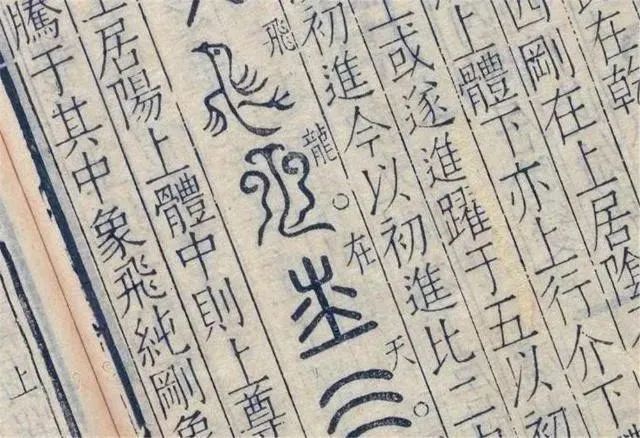 在乾
四剛在上居陰
上體下亦上行介下
上或遂進躍于五以初
初進今以初進比二
飛龍在天
居陽上體中則上尊
騰于其中象飛純剛象
上